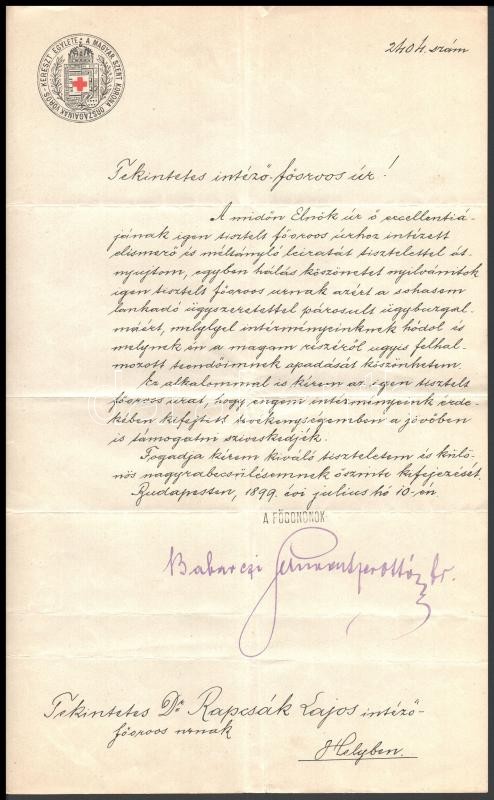 A MAGYAR SZENT KORONA ORSZÁGAINAK VÖRÖS-KERESZT EGYLETE
2404. szám
Tekintetes intéző-főorvos úr!
A midőn Elnök úr ő excellentiá-
jának igen tisztelt főorvos úrhoz intézett
elismerő is méltányló leiratát tisztelettel át-
nyujtom, egyben hálás köszönetet nyilvánitok
igen tisztelt főorvos urnak azért a sohasem
lankadó ügyszeretettel párosult ügybuzgal-
máért, melylyel intézményeinknek hódol is
melynek én a magam részéről ugyis felhal-
mozott teendőimnek apadását köszönhetem.
Ez alkalommal is kérem az igen tisztelt
főorvos urat, hogy engem intézményeink érde-
kében kifejtett tevékenységemben a jövőben
is támogatni sziveskedjék.
Fogadja kérem kiváló tiszteletem és külö-
nös nagyrabecsülésemnek őszinte kifejezését.
Budapesten, 1899. évi július hó 10-én.
A FŐGONDNOK
Babarczi
Tekintetes Dr Rapcsák Lajos intéző-
főorvos urnak
Helyben.